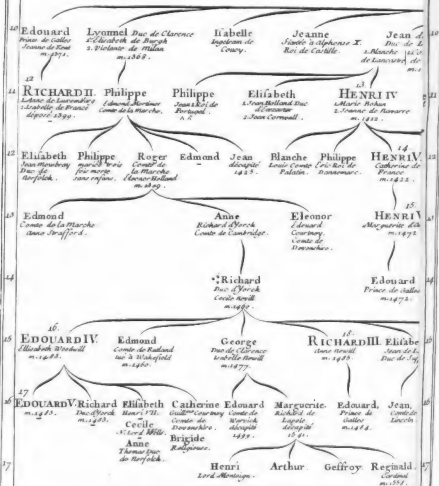 10 Edouard Prince de Galles Jeanne de Kent m. 1371.
Lyonnel Duc de Clarence 1. Elisabeth de Burgh 2. Violante de Milan m. 1368.
Isabelle Ingelram de Coucy.
Jeanne Fiancée a Alphonse X. Roi de Castille.
Jean d. Duc de L 1. Blanche de Lancastre, de m. 1
12
11 RICHARD II. 1. Anne de Luxembourg 2. Isabelle de France déposé 1399.
Philippe Edmond Mortimer Comte de la Marche.
Philippe Jean I. Roi de Portugal.
Elisabeth 1. Jean Holland Duc d'Excester 2. Jean Cornwall.
13.
HENRI IV 1. Marie Bohun 2. Jeanne de Navarre m. 1412.
11
12 Elisabeth Jean Mowbray Duc de Norfolck.
Philippe mariée trois fois morte sans enfans.
Roger Comte de la Marche Eleonor Holland m. 1399.
Edmond
Jean décapité 1425.
Blanche Louis Comte Palatin.
Philippe Eric Roi de Dannemarc.
14.
HENRI V. Catherine de France m. 1422.
12
13 Edmond Comte de la Marche Anne Strafford.
Anne Richard d'Yorck Comte de Cambridge.
Eleonor Edouard Courtney, Comte de Devonshire.
15.
HENRI V Marguerite d'A m. 1472
13
14 Richard Duc d'Yorck Cecile Nevill m. 1460.
Edouard Prince de Galles m. 1472.
14
16.
15 EDOUARD IV. Elisabeth Woodwill m. 1483.
Edmond Comte de Rutland tué à Wakefield m. 1460.
George Duc de Clarence Isabelle Nevill m. 1477.
18.
RICHARD III. Anne Nevill m. 1485
Elisabe Jean de l. Duc de Suf
15
17
16 EDOUARD V. m. 1483.
Richard Duc d'Yorck m. 1483.
Elisabeth Henri VII.
Cecile
Anne Thomas Duc de Norfolck.
Catherine Guill. Courtney Comte de Devonshire.
Brigide Religieuse.
Edouard Comte de Warwick décapité 1499.
Marguerite. Richard de la Pole décapité 1541.
Edouard, Prince de Galles m. 1484.
Jean, Comte de Lincoln
16
17 Henri Lord Montaigu.
Arthur.
Geffroy.
Reginald. Cardinal m. 1558.
17